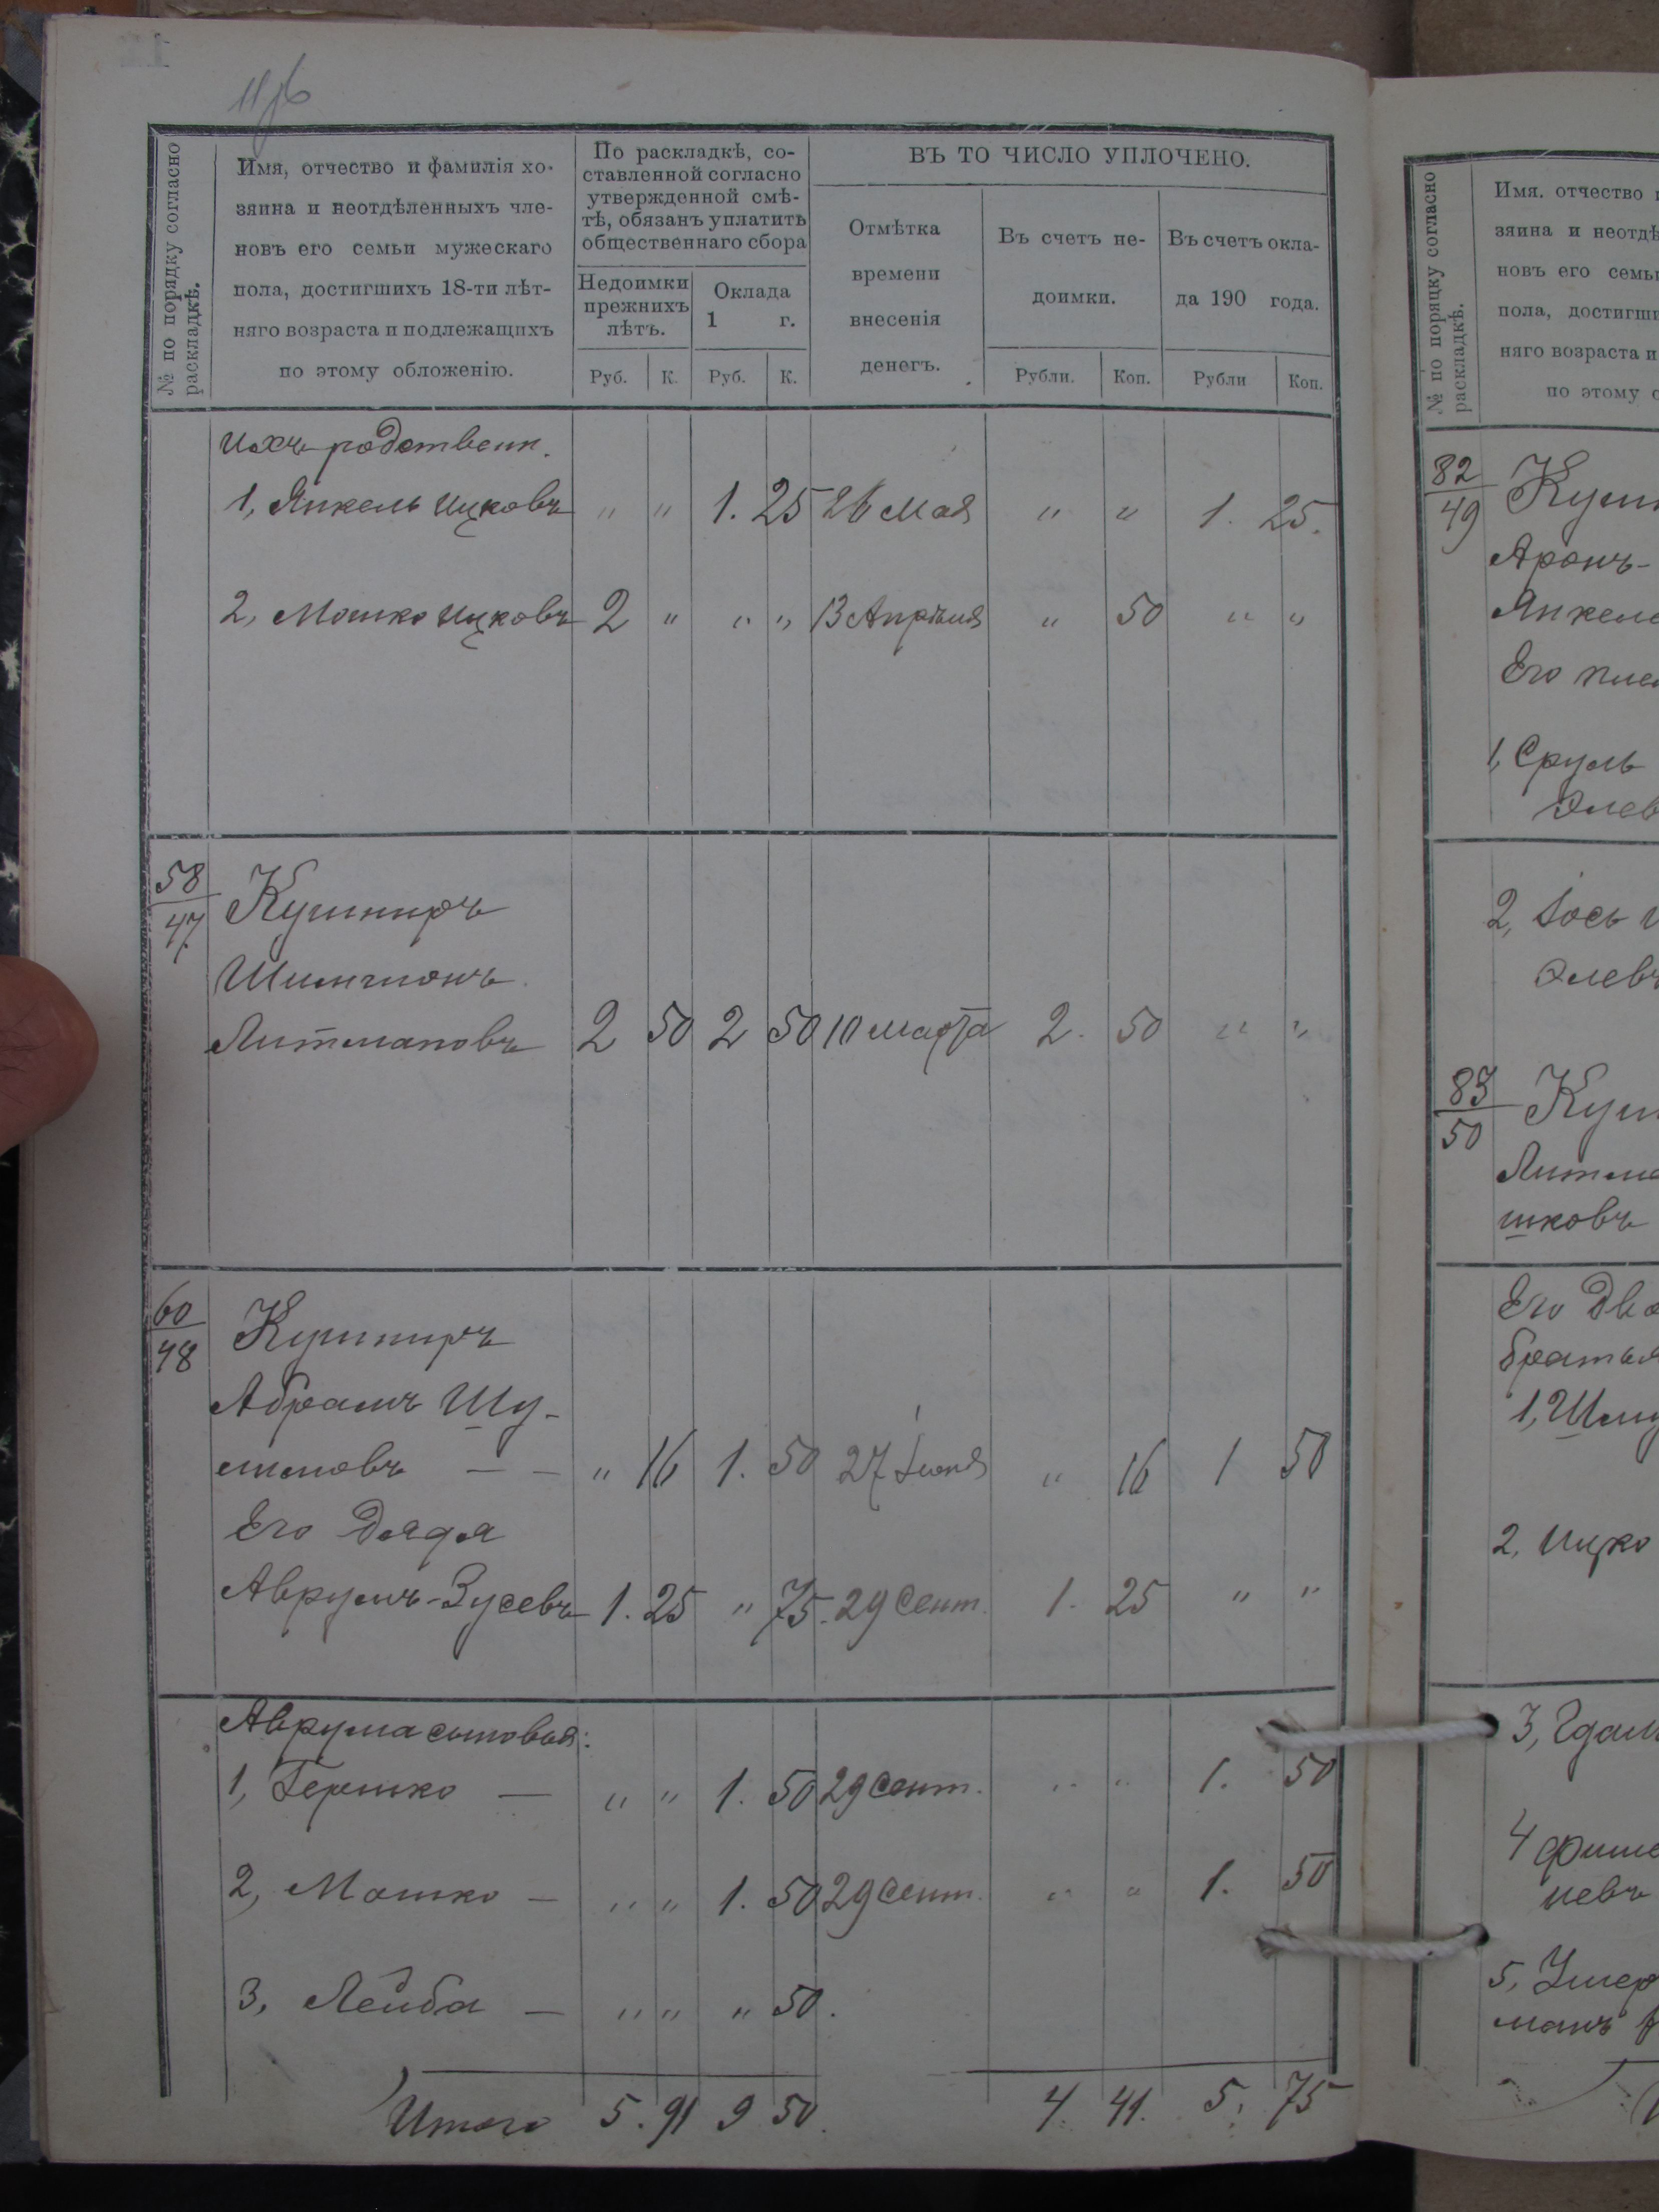 № по порядку согласно
раскладкѣ.
Имя, отчество и фамилія хо-
зяина и неотдѣленныхъ чле-
новъ его семьи мужескаго
пола, достигшихъ 18-ти лѣт-
няго возраста и подлежащихъ
по этому обложенію.
По раскладкѣ, со-
ставленной согласно
утвержденной смѣ-
тѣ, обязанъ уплатить
общественнаго сбора
Недоимки
прежнихъ
лѣтъ.
Оклада
1 г.
Руб. К. Руб. К.
ВЪ ТО ЧИСЛО УПЛОЧЕНО.
Отмѣтка
времени
внесенія
денегъ.
Въ счетъ не-
доимки.
Въ счетъ окла-
да 190 года.
Рубли. Коп. Рубли Коп.
Ихъ родственн.
1, Янкель Ицковъ " " 1. 25 26 Мая " " 1. 25.
2, Мошко Ицковъ 2 " " " 13 Апрѣля " 50 " "
58
47
Кушниръ
Шимшонъ
Литмановъ 2 50 2 50 10 марта 2. 50 " "
60
48
Кушниръ
Абрамъ Шу-
лимовъ — — " 16 1. 50 27 Іюня " 16 1 50
Его дядя
Аврумъ-Зусевъ 1. 25 " 75. 29 Сент. 1. 25 " "
Аврума сыновья:
1, Гершко — " " 1. 50 29 Сент. " " 1. 50
2, Мошко — " " 1. 50 29 Сент. " " 1. 50
3, Лейба — " " " 50.
Итого 5. 91 9 50. 4. 41. 5. 75
№ по порядку согласно
раскладкѣ.
Имя. отчество
зяина и неотдѣ
новъ его семьи
пола, достигши
няго возраста и
по этому
82
49
Куш
Аронъ-
Янкеле
Его пле
1, Сруль
Элев
2, Іось
Элевъ
83
50
Куш
Литма
шковъ
Его два
братья
1, Шму
2, Ицко
3, Гдал
4 Фише
левъ
5,
манъ